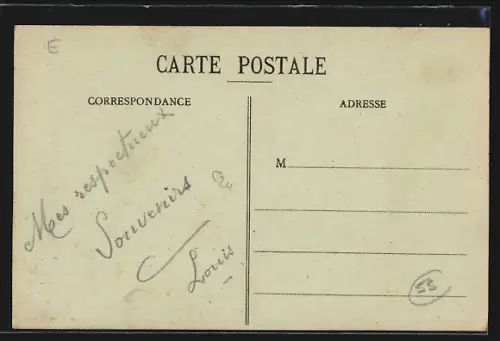 E
CARTE POSTALE
CORRESPONDANCE
ADRESSE
Mes respectueux
Souvenirs
Louis
M
55